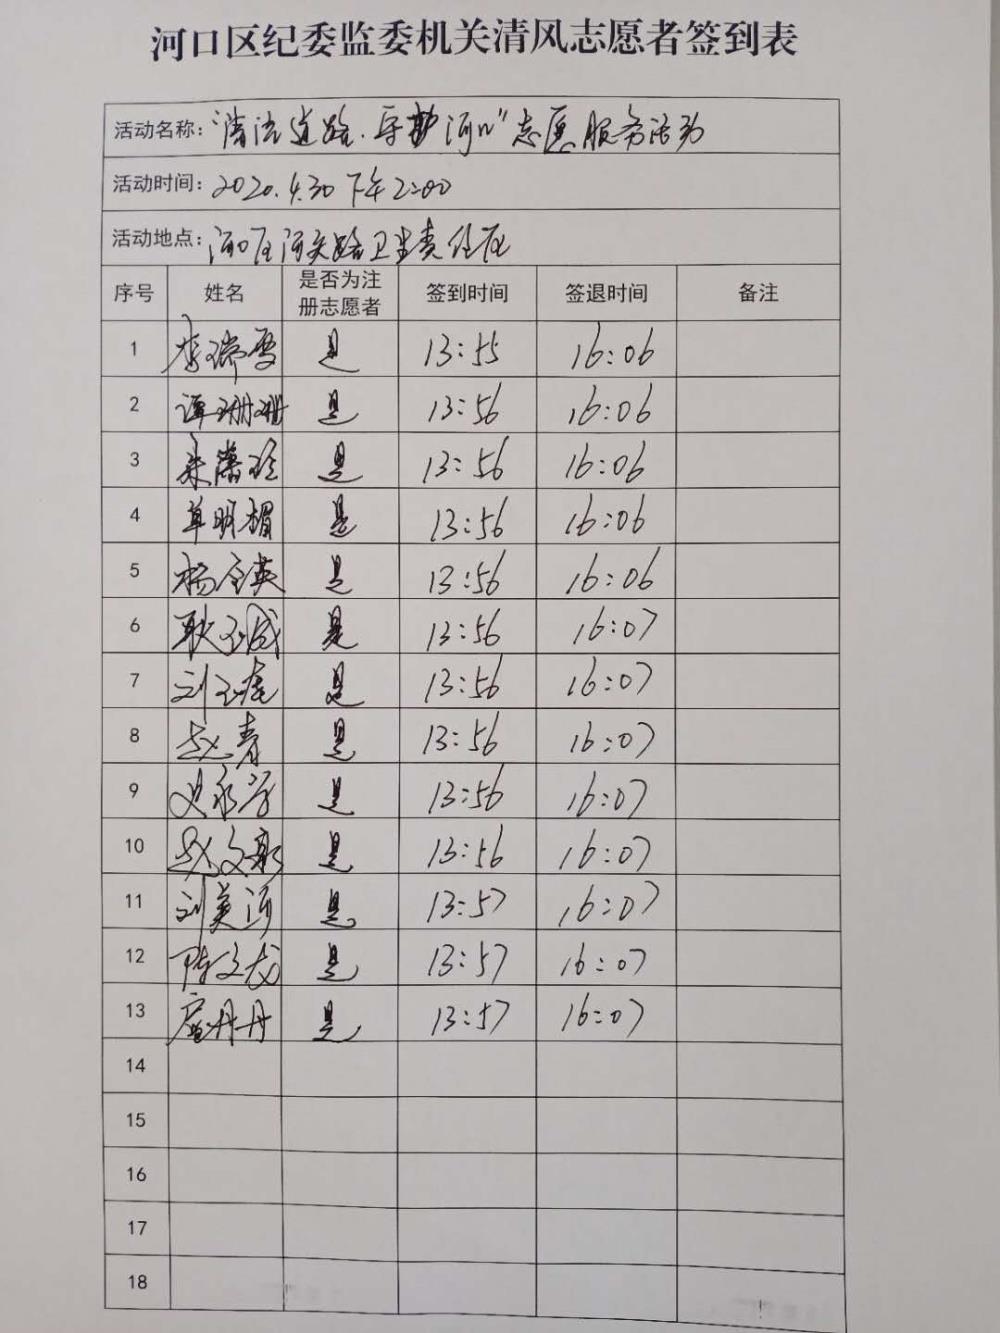 河口区纪委监委机关清风志愿者签到表
活动名称："清洁道路·守护河口"志愿服务活动
活动时间：2020.4.30 下午2:00
活动地点：河口区河庆路卫生责任区
序号 姓名 是否为注册志愿者 签到时间 签退时间 备注
1 李瑞雪 是 13:55 16:06
2 谭珊珊 是 13:56 16:06
3 是 13:56 16:06
4 单明楣 是 13:56 16:06
5 杨金英 是 13:56 16:06
6 耿玉成 是 13:56 16:07
7 刘玉虎 是 13:56 16:07
8 赵青 是 13:56 16:07
9 是 13:56 16:07
10 是 13:56 16:07
11 刘美河 是 13:57 16:07
12 陈文龙 是 13:57 16:07
13 丹丹 是 13:57 16:07
14
15
16
17
18